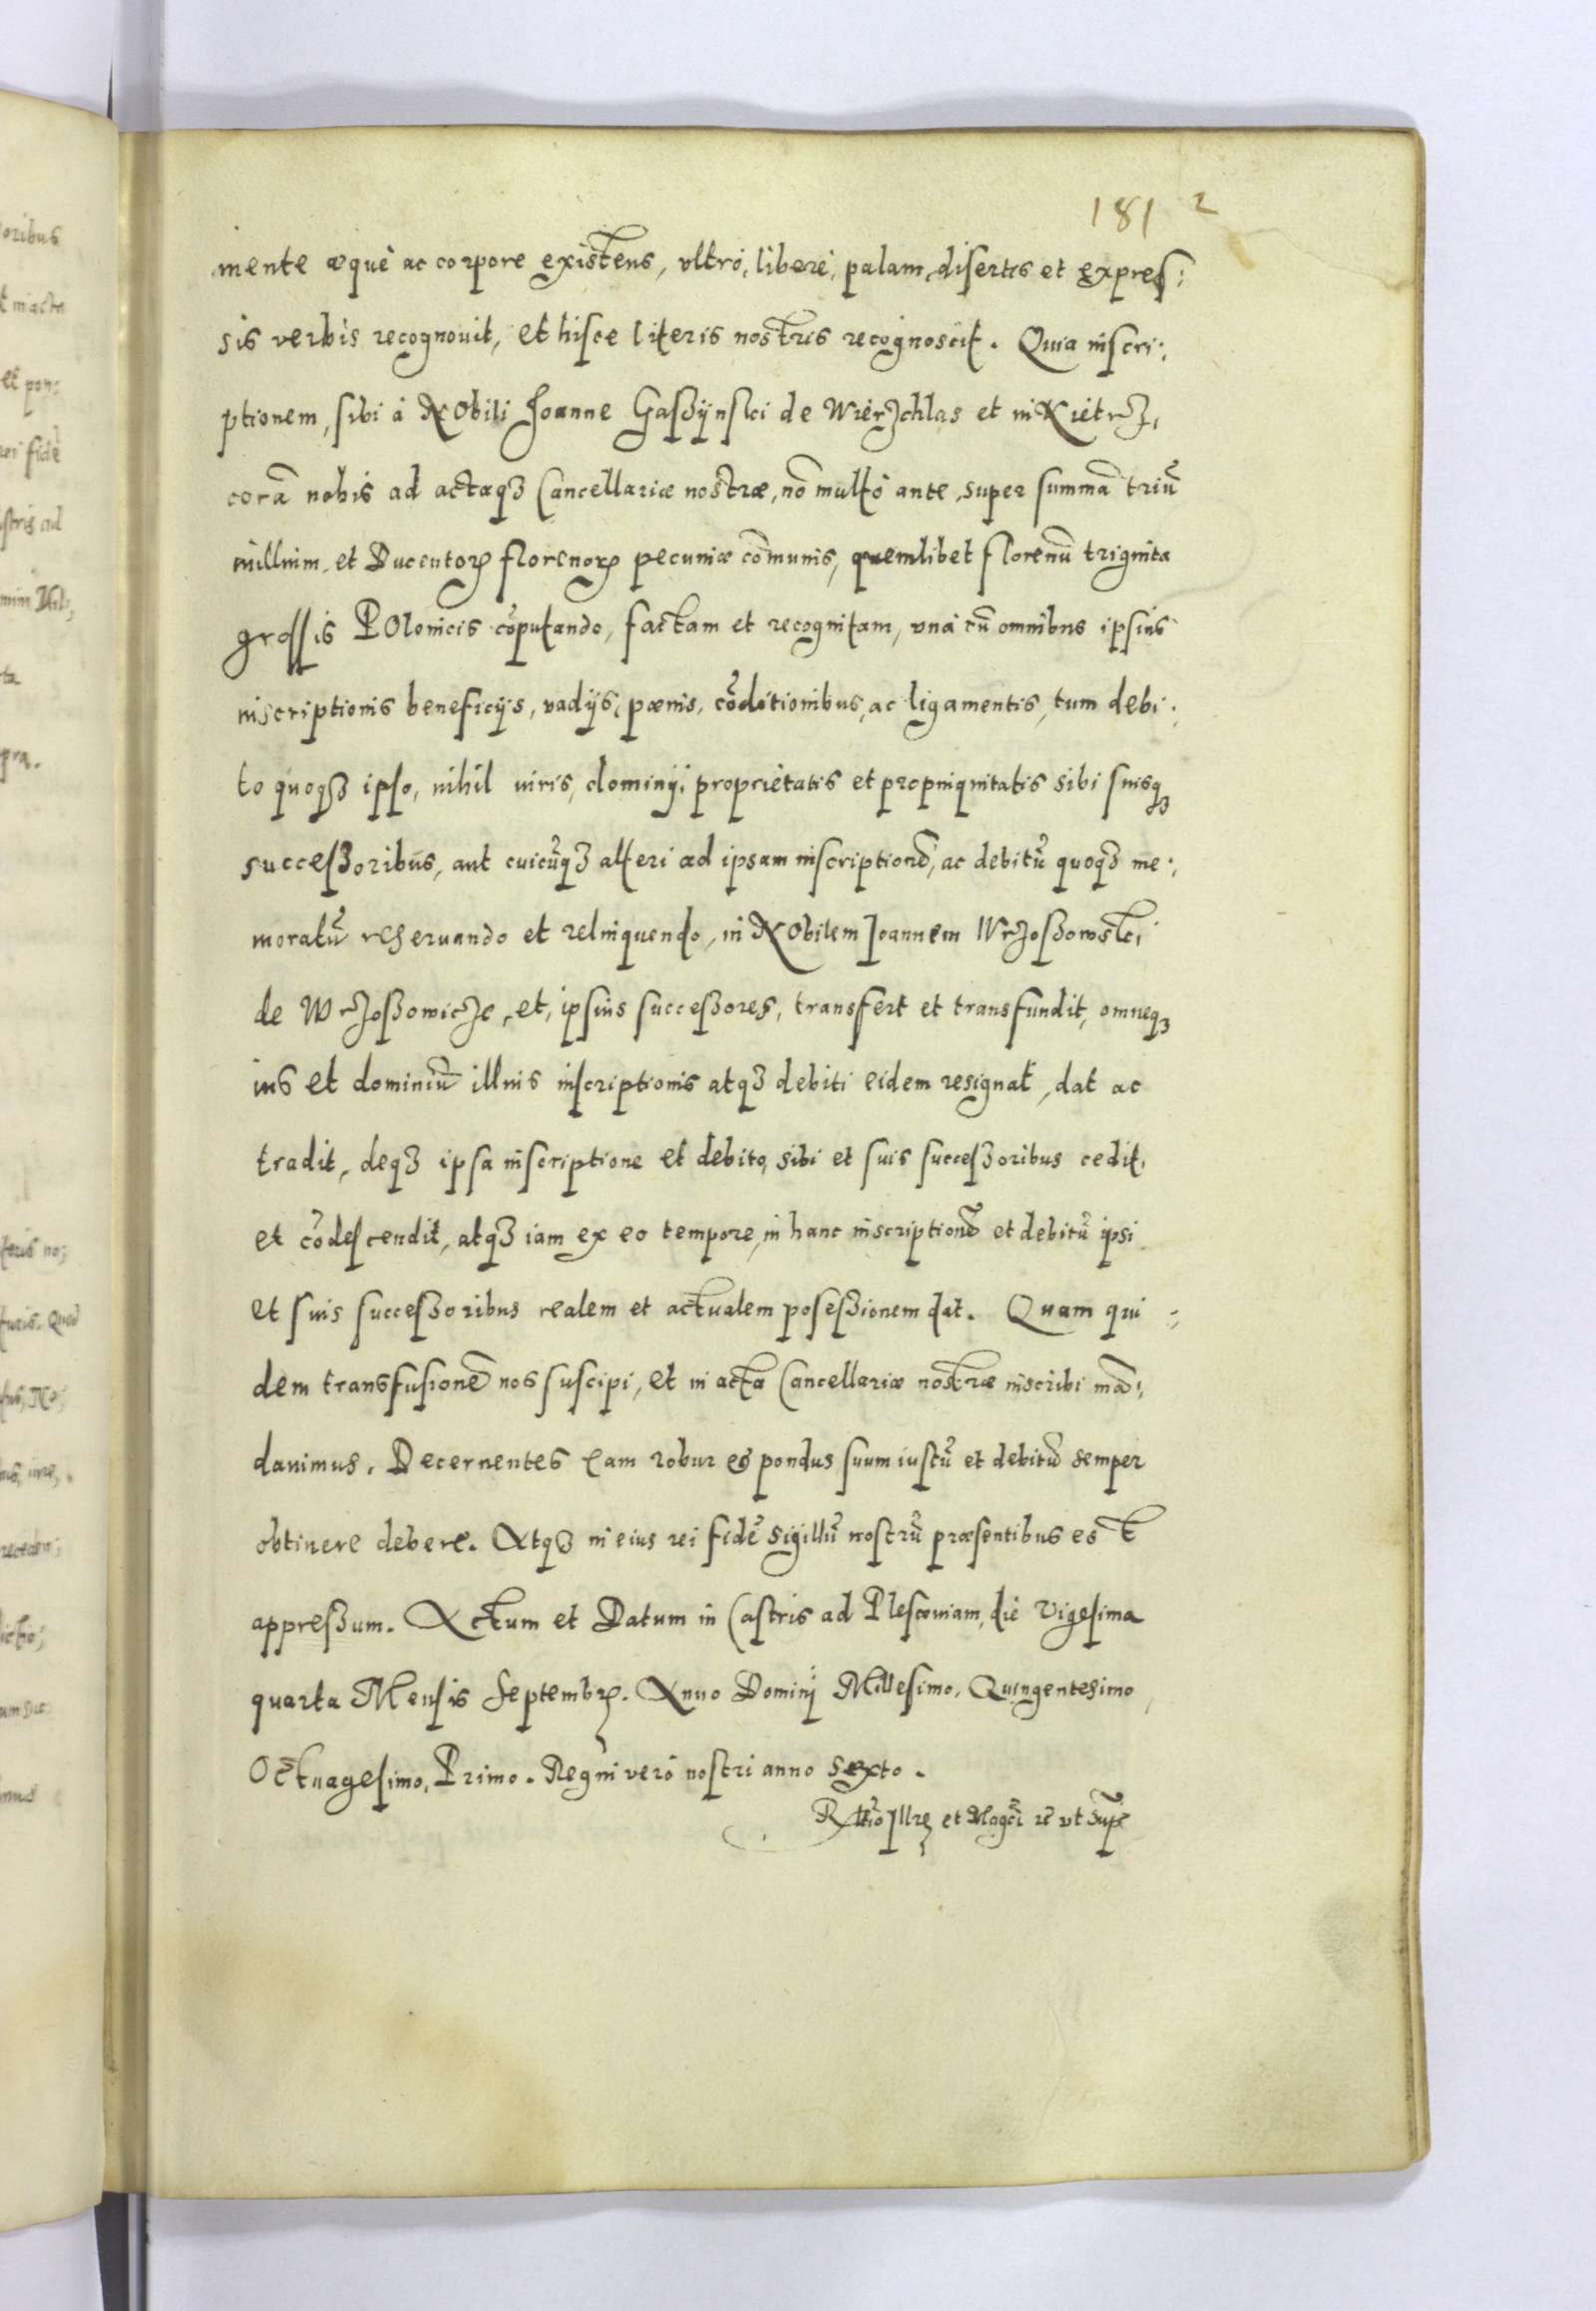 181 2
mente æquè ac corpore existens, vltrò, liberè, palam, disertis et expres:
sis verbis recognouit, et hisce literis nostris recognoscit. Quia inscri:
ptionem, sibi à NObili Joanne Gaßÿnski de Wierzchlas et in Kietrz,
corã nobis ad actaqꝫ Cancellariæ nostræ, nõ multò ante, super summã triũ
millium et Ducentoꝝ florenoꝝ pecuniæ cõmunis, quemlibet florenũ triginta
grossis POlonicis cõputando, factam et recognitam, vnà cũ omnibus ipsius
inscriptionis beneficijs, vadijs, pœnis, cõditionibus, ac ligamentis, tum debi:
to quoqꝫ ipso, nihil iuris, dominij, proprietatis et propinquitatis sibi suisqꝫ
succeßoribus, aut cuicũqꝫ alteri ad ipsam inscriptionẽ, ac debitũ quoqꝫ me:
moratũ reseruando et relinquendo, in NObilem Joannem Wrzoßowski
de Wrzoßowicze, et, ipsius succeßores, transfert et transfundit, omneqꝫ
ius et dominiũ illius inscriptionis atqꝫ debiti eidem resignat, dat ac
tradit, deqꝫ ipsa inscriptione et debito, sibi et suis succeßoribus cedit,
et cõdescendit, atqꝫ iam ex eo tempore, in hanc inscriptionẽ et debitũ ipsi
et suis succeßoribus realem et actualem poseßionem dat. Quam qui:
dem transfusionẽ nos suscipi, et in acta Cancellariæ nostræ inscribi mã:
dauimus. Decernentes eam robur et pondus suum iustũ et debitũ semper
obtinere debere. Atqꝫ in eius rei fidẽ sigillũ nostrũ præsentibus est
appreßum. Actum et Datum in Castris ad Plescouiam, die Vigesima
quarta Mensis Septembꝝ. Anno Dominj Millesimo, Quingentesimo
Octuagesimo, Primo. Regni verò nostri anno sexto.
Rltio Illrẽ et Magci rẽ vt Supr